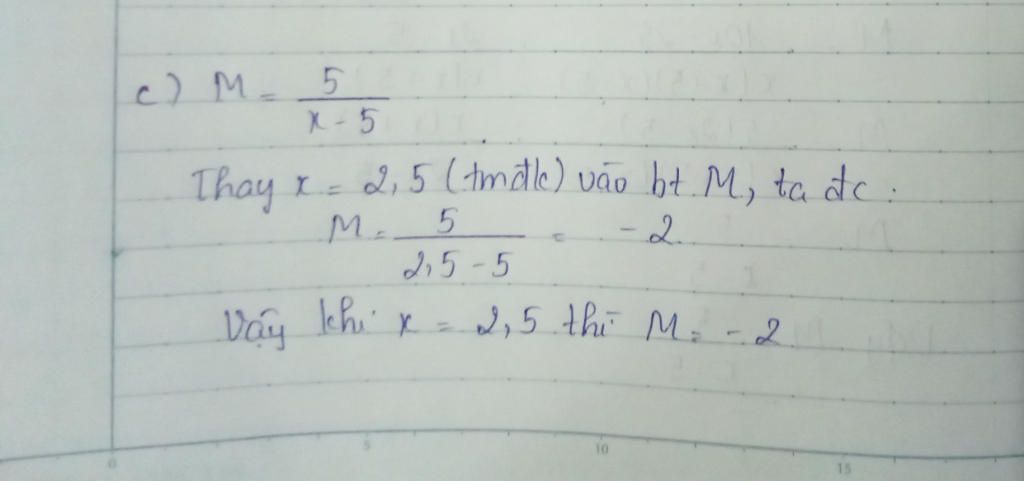 c) M = 5 / x - 5
Thay x = 2,5 (tmđk) vào bt M, ta đc :
M = 5 / 2,5 - 5 = -2
Vậy khi x = 2,5 thì M = -2
0 5 10 15